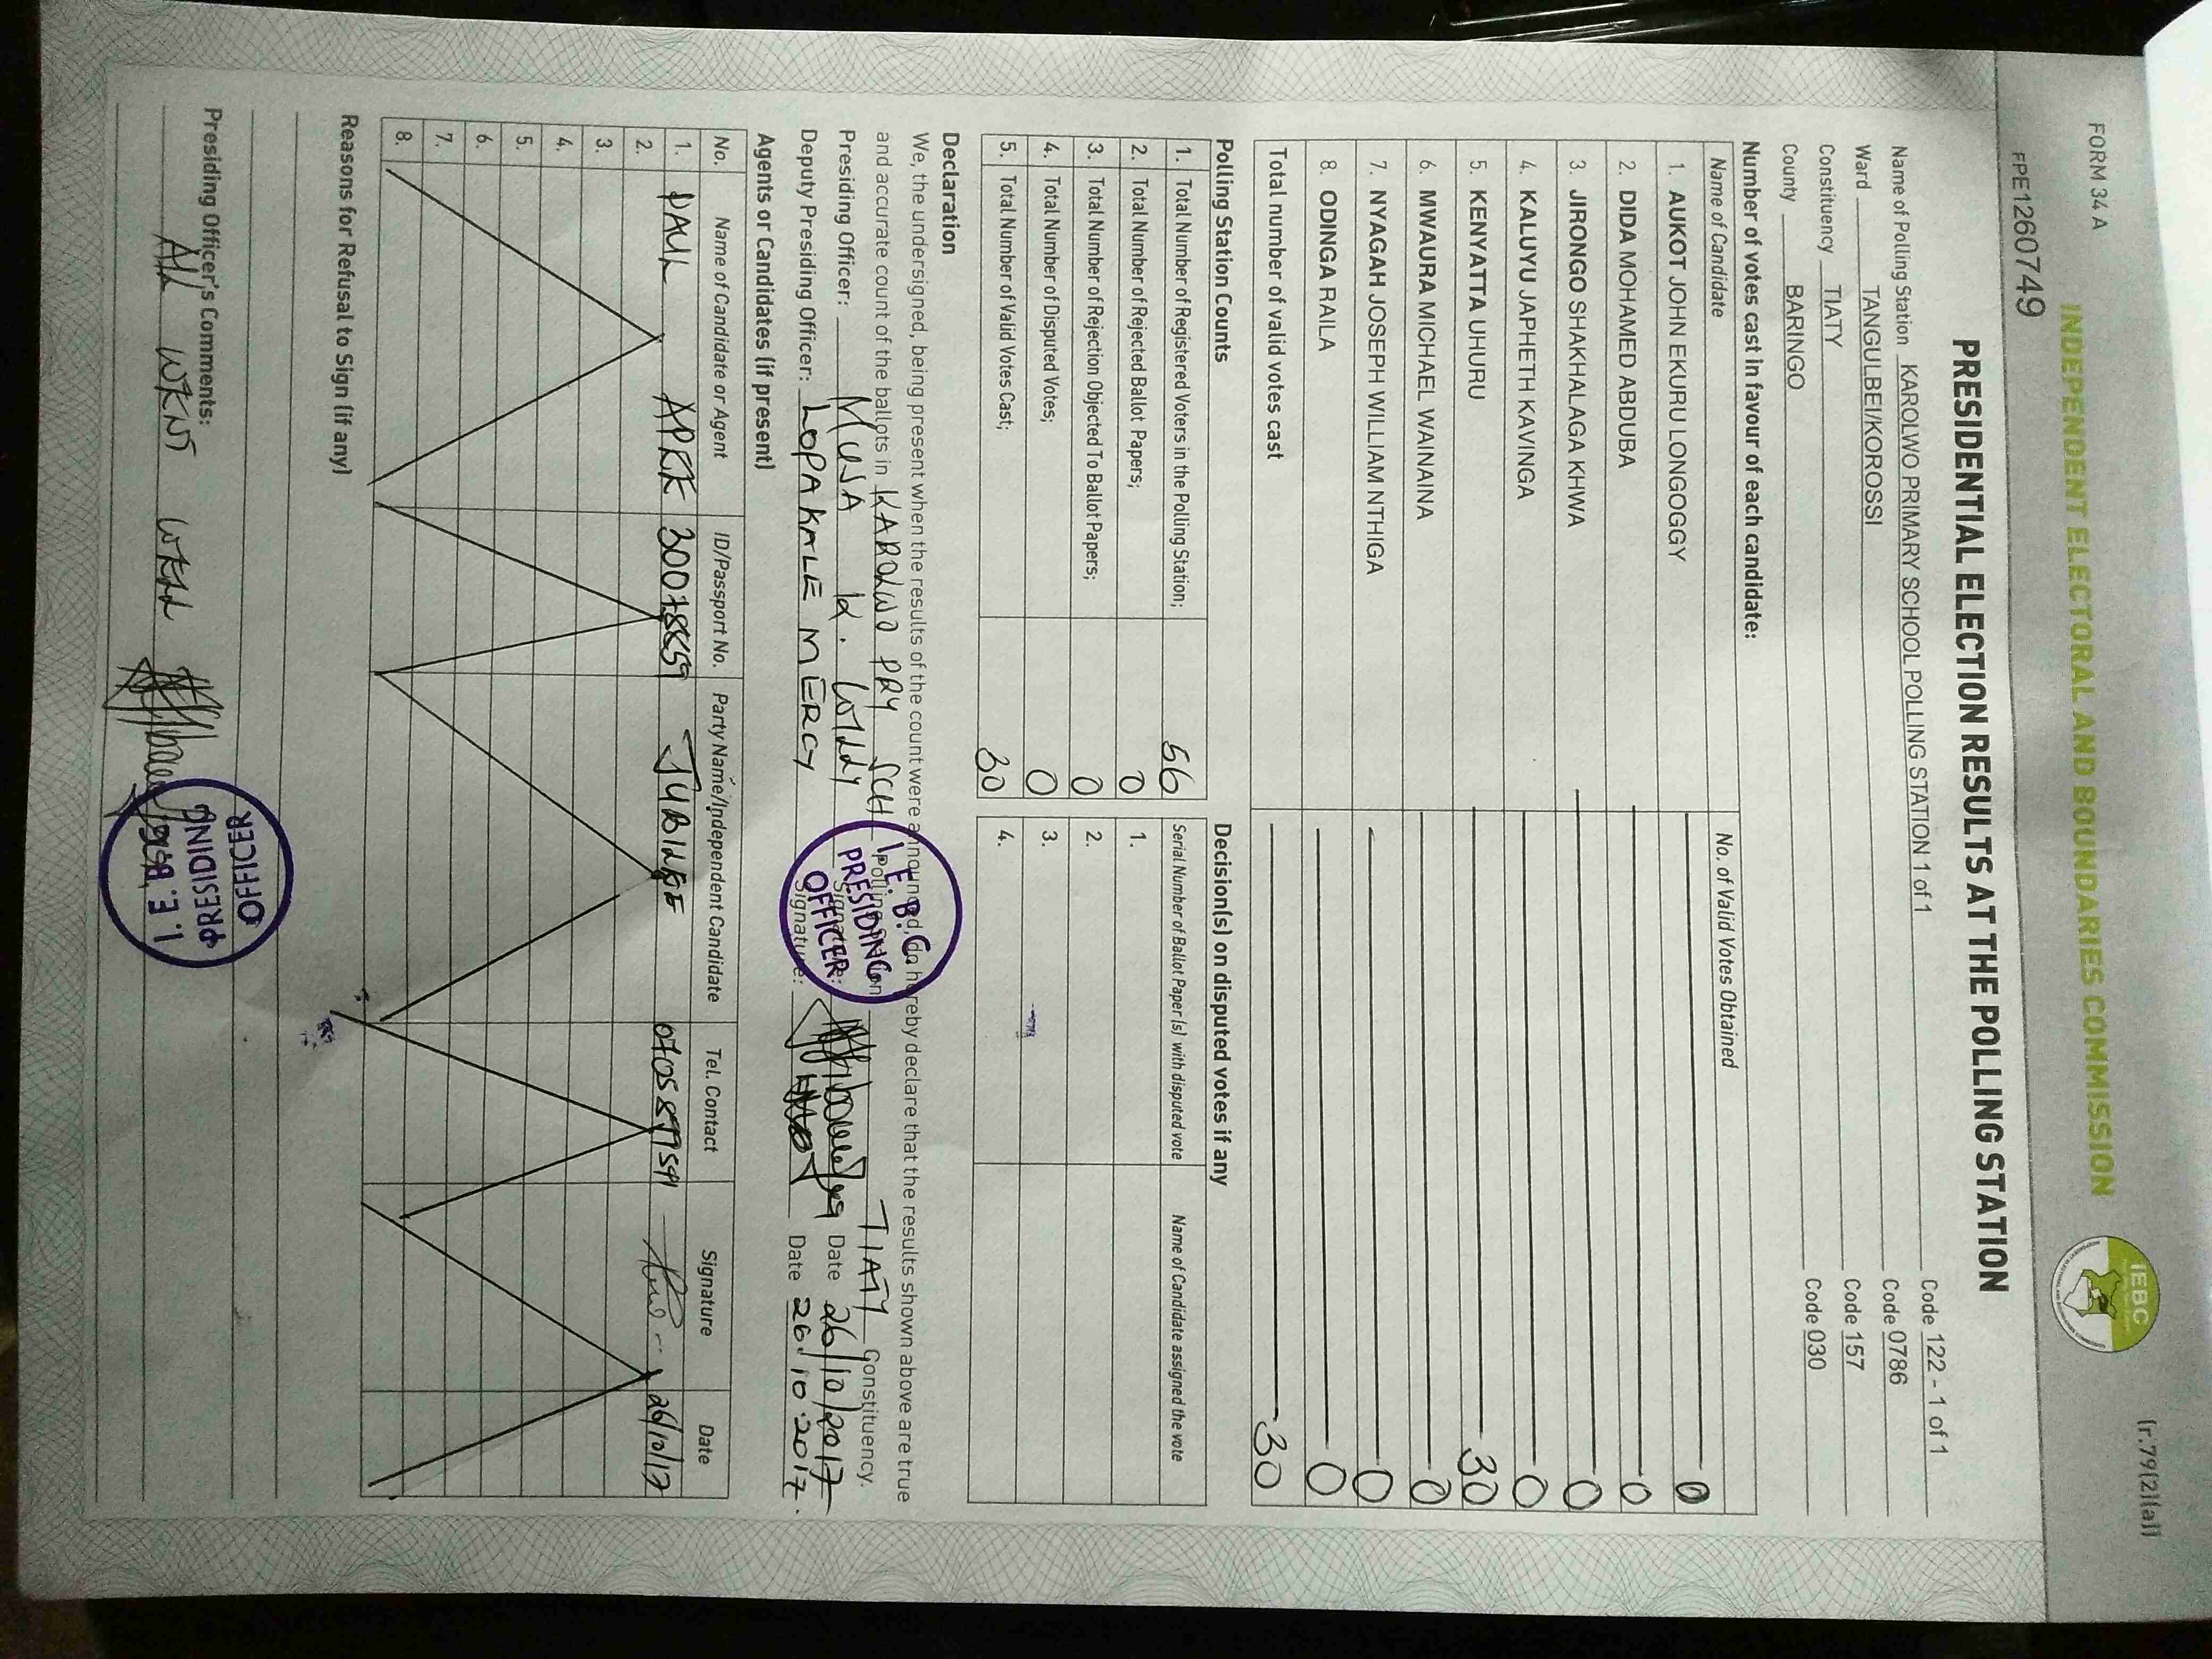 FORM 34 A
[r.79(2)(a)]
INDEPENDENT ELECTORAL AND BOUNDARIES COMMISSION
IEBC
FPE1260749
PRESIDENTIAL ELECTION RESULTS AT THE POLLING STATION
Name of Polling Station KAROLWO PRIMARY SCHOOL POLLING STATION 1 of 1 Code 122 - 1 of 1
Ward TANGULBEI/KOROSSI Code 0786
Constituency TIATY Code 157
County BARINGO Code 030
Number of votes cast in favour of each candidate:
Name of Candidate No. of Valid Votes Obtained
1. AUKOT JOHN EKURU LONGOGGY 0
2. DIDA MOHAMED ABDUBA 0
3. JIRONGO SHAKHALAGA KHWA 0
4. KALUYU JAPHETH KAVINGA 0
5. KENYATTA UHURU 30
6. MWAURA MICHAEL WAINAINA 0
7. NYAGAH JOSEPH WILLIAM NTHIGA 0
8. ODINGA RAILA 0
Total number of valid votes cast 30
Polling Station Counts Decision(s) on disputed votes if any
Serial Number of Ballot Paper (s) with disputed vote Name of Candidate assigned the vote
1. Total Number of Registered Voters in the Polling Station; 56
2. Total Number of Rejected Ballot Papers; 0 1.
3. Total Number of Rejection Objected To Ballot Papers; 0 2.
4. Total Number of Disputed Votes; 0 3.
5. Total Number of Valid Votes Cast; 30 4.
Declaration
We, the undersigned, being present when the results of the count were announced, do hereby declare that the results shown above are true
and accurate count of the ballots in KAROLWO PRY SCH Polling Station TIATY Constituency.
Presiding Officer: MUSA K. WILLY Signature: Date 26/10/2017
Deputy Presiding Officer: LOPAKALE MERCY Signature: Date 26.10.2017.
I.E.B.C.
PRESIDING
OFFICER
Agents or Candidates (if present)
No. Name of Candidate or Agent ID/Passport No. Party Name/Independent Candidate Tel. Contact Signature Date
1. PAUL APEK JUBILEE 26/10/17
2.
3.
4.
5.
6.
7.
8.
Reasons for Refusal to Sign (if any)
Presiding Officer's Comments:
ALL WENT WELL
I.E.B.C.
PRESIDING
OFFICER